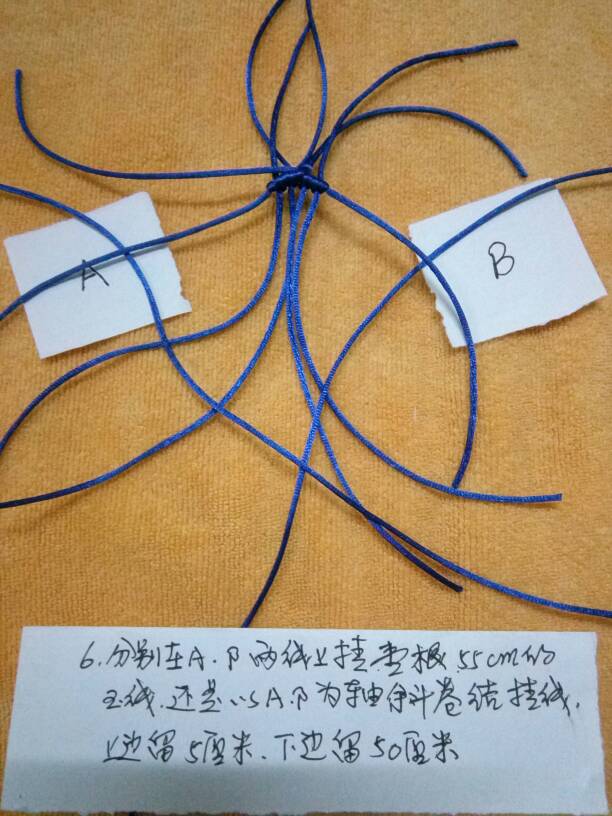 A
B
6.分别在A.B两线上挂壹根55cm的
玉线.还是以A.B为轴做斜卷结挂线.
上边留5厘米.下边留50厘米